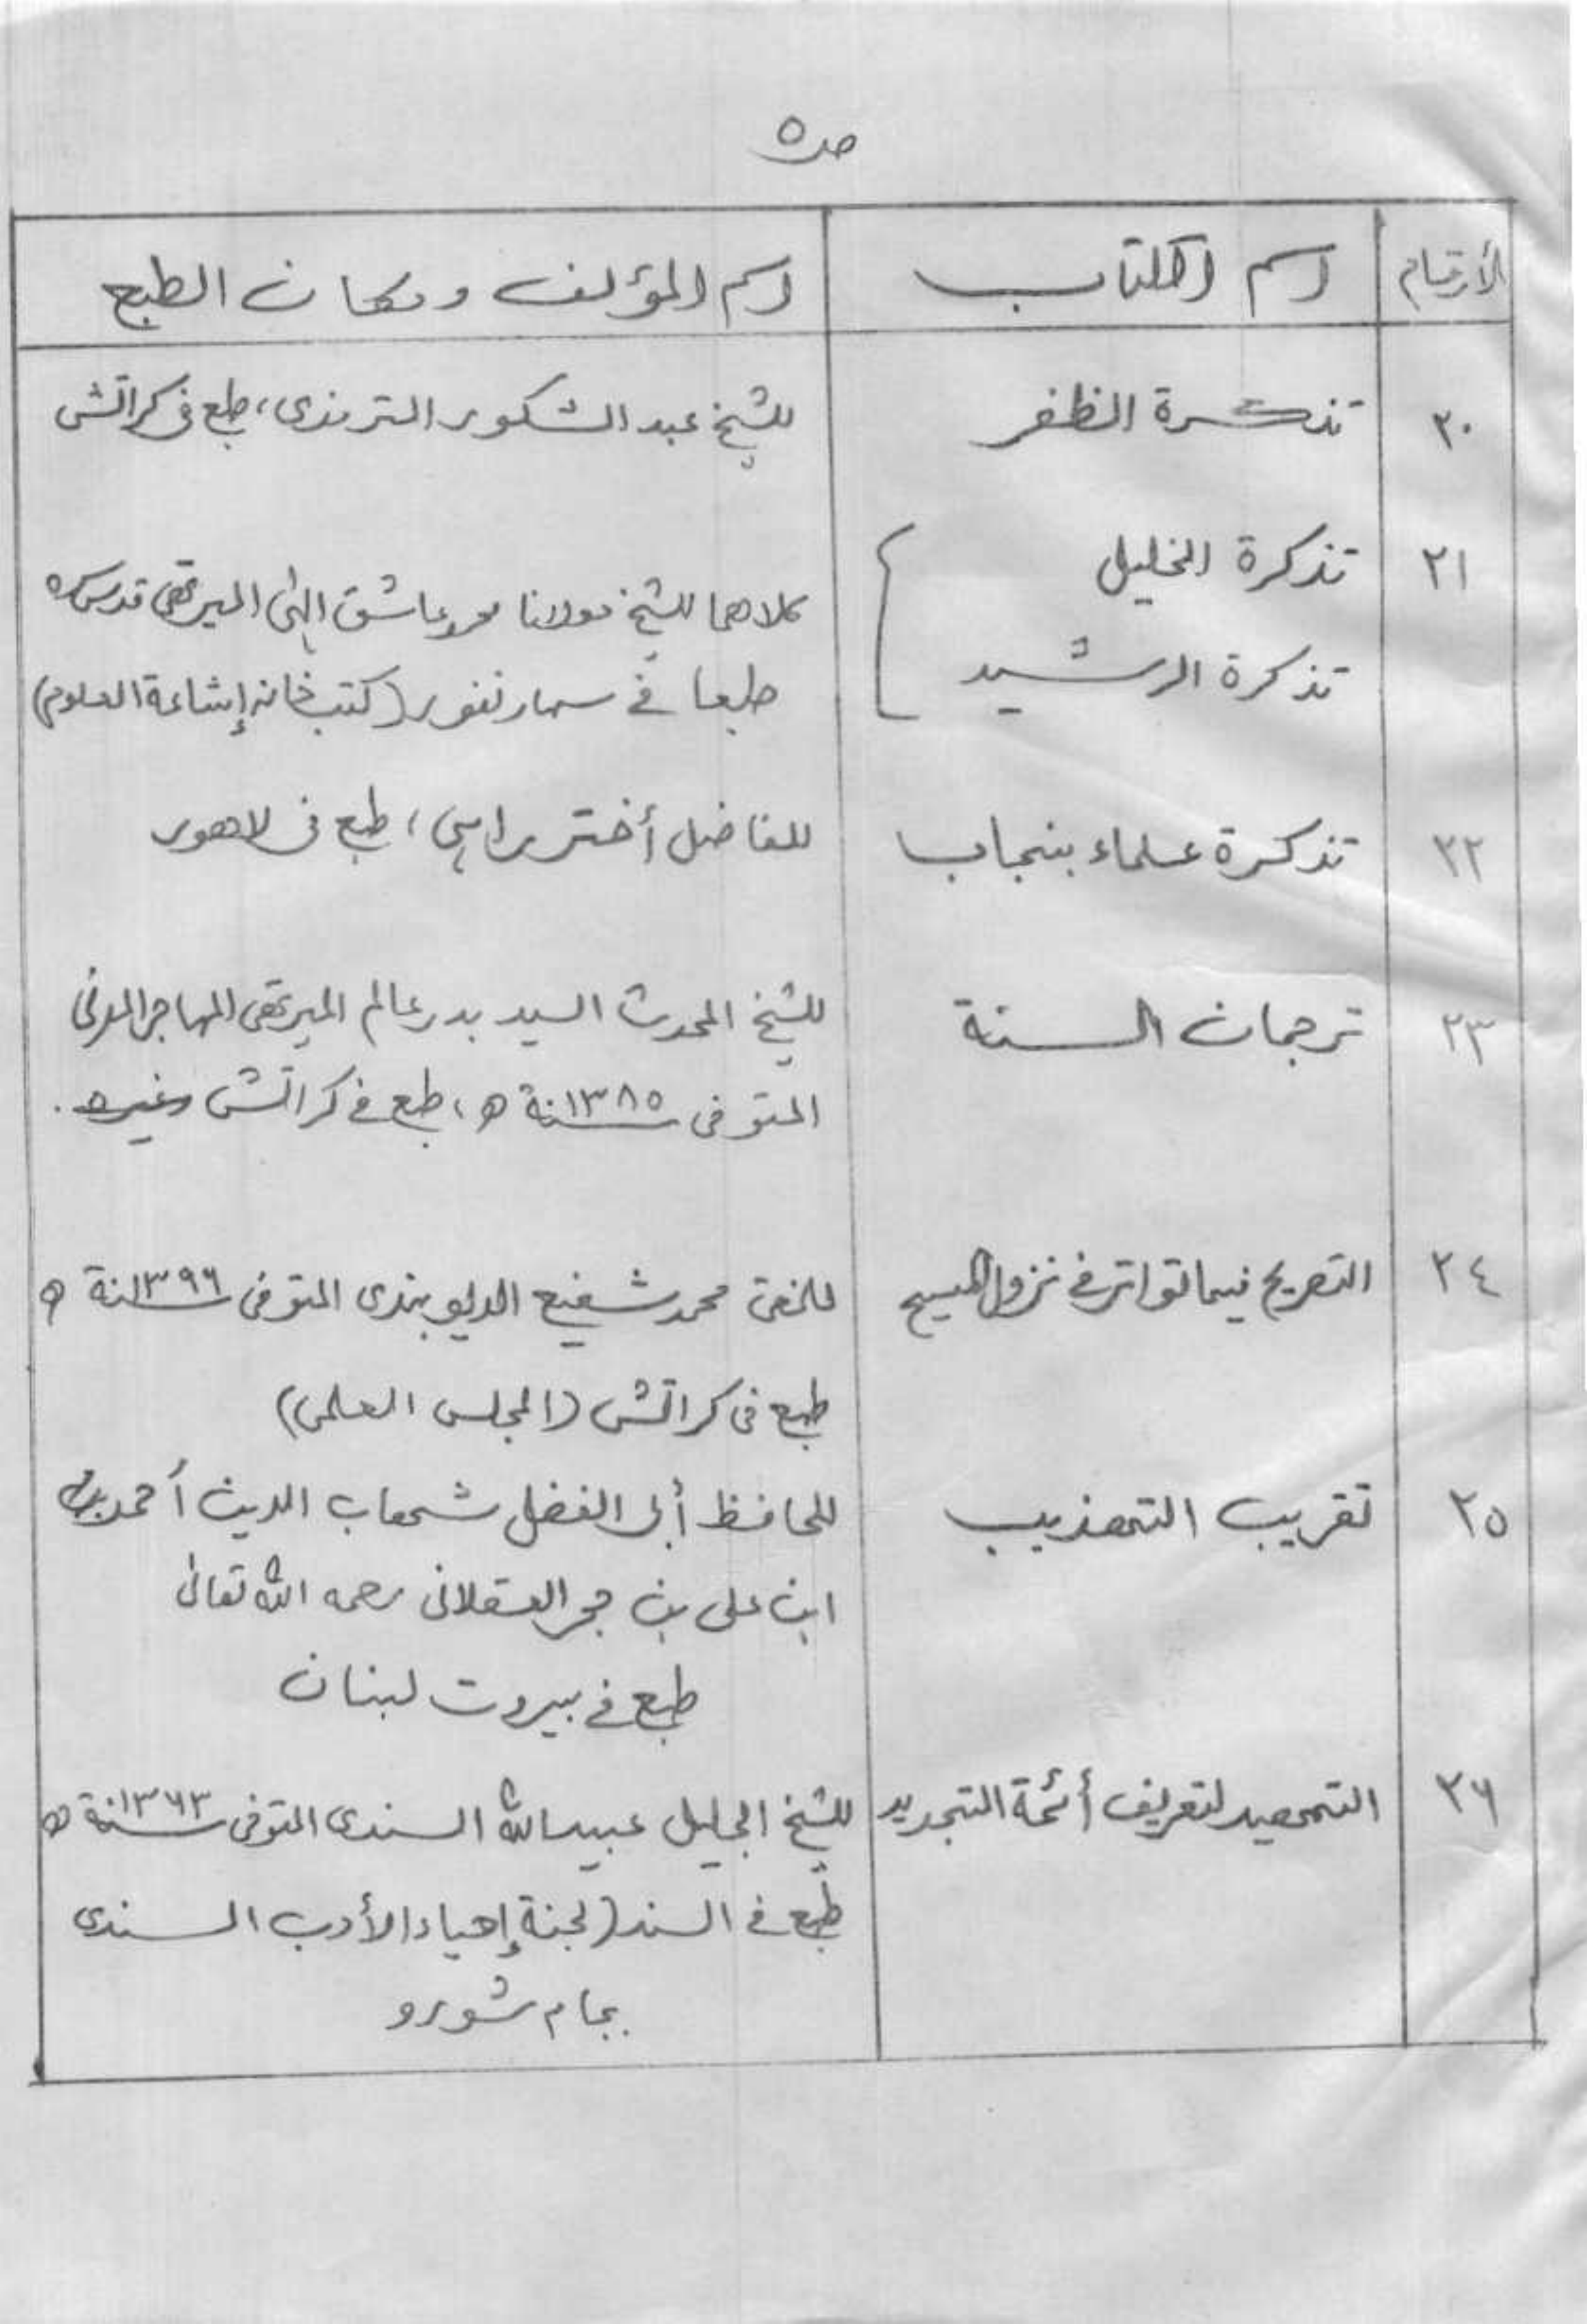 ص ٥
الأرقام اسم الكتاب اسم المؤلف ومكان الطبع
٢٠ تذكرة الظفر للشيخ عبد الشكور الترمذى، طبع فى كراتشى
٢١ تذكرة الخليل كلاهما للشيخ مولانا محمد عاشق إلهى الميرتهى قدس سره
تذكرة الرشيد طبعا فى سهارنفور (كتب خانه إشاعة العلوم)
٢٢ تذكرة علماء بنجاب للفاضل أختر راہی، طبع فى لاهور
٢٣ ترجمان السنة للشيخ المحدث السيد بدر عالم الميرتهى المهاجر المدنى
المتوفى سنة ١٣٨٥ ه، طبع فى كراتشى وغيره.
٢٤ التصريح فيما تواتر فى نزول المسيح للمفتى محمد شفيع الديوبندى المتوفى سنة ١٣٩٦ ه
طبع فى كراتشى (المجلس العلمى)
٢٥ تقريب التهذيب للحافظ أبى الفضل شهاب الدين أحمد بن
ابن على بن حجر العسقلانى رحمه الله تعالى
طبع فى بيروت لبنان
٢٦ التمهيد لتعريف أئمة التجديد للشيخ الجليل عبيد الله السندى المتوفى سنة ١٣٦٣ ه
طبع فى السند (لجنة إحياء الأدب السندى
بجام شورو